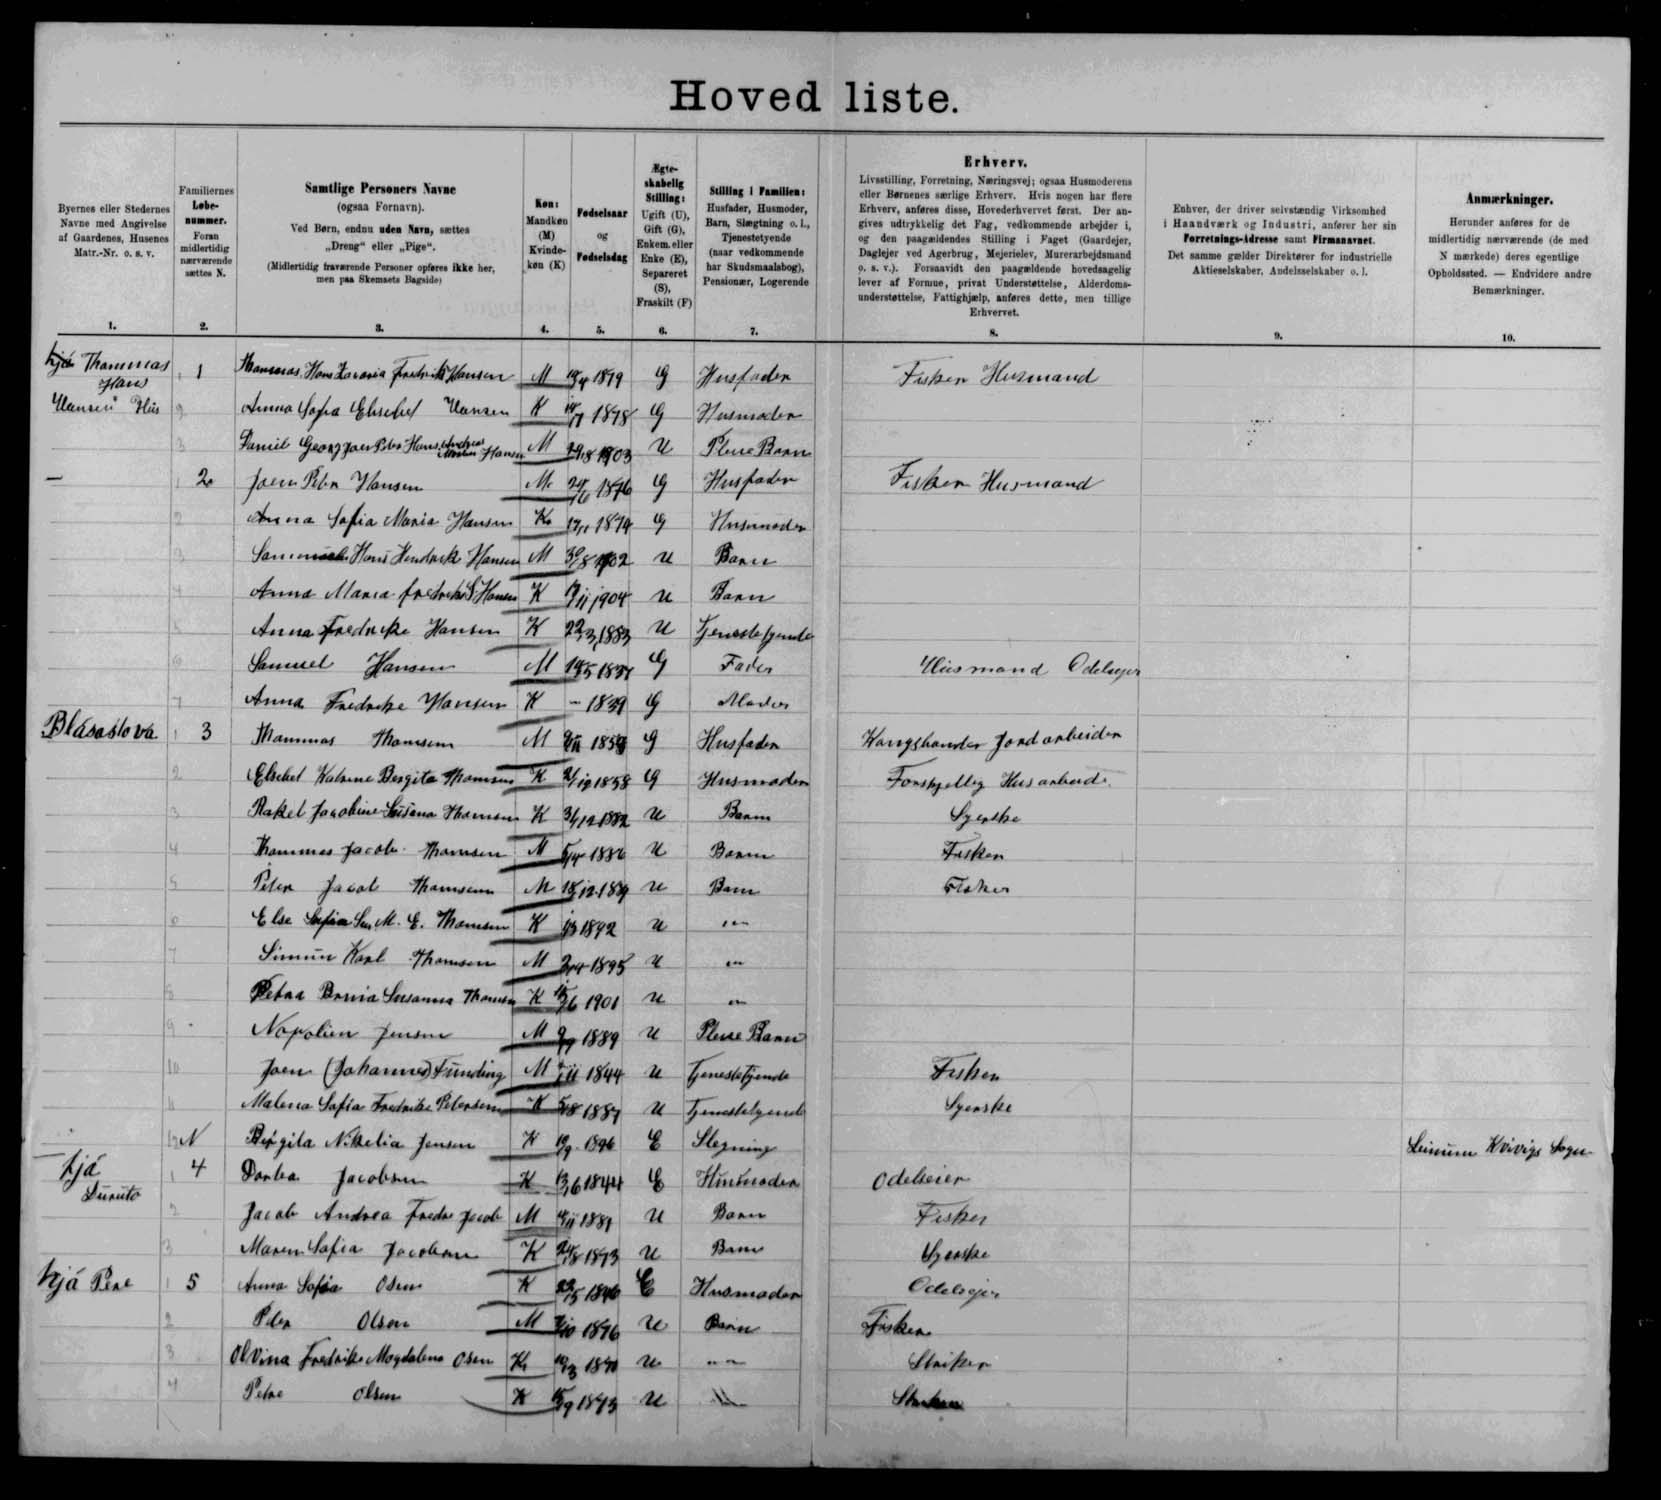 Hoved liste.
Byernes eller Stedernes Navne med Angivelse af Gaardenes, Husenes Matr.-Nr. o. s. v.
Familiernes Løbenummer. Foran midlertidig nærværende sættes N.
Samtlige Personers Navne
(ogsaa Fornavn).
Ved Børn, endnu uden Navn, sættes „Dreng“ eller „Pige“.
(Midlertidig fraværende Personer opføres ikke her, men paa Skemaets Bagside)
Køn: Mandkøn (M) Kvindekøn (K)
Fødselsaar og Fødselsdag
Ægteskabelig Stilling: Ugift (U), Gift (G), Enkem. eller Enke (E), Separeret (S), Fraskilt (F)
Stilling i Familien: Husfader, Husmoder, Barn, Slægtning o. l., Tjenestetyende (naar vedkommende har Skudsmaalsbog), Pensionær, Logerende
Erhverv.
Livsstilling, Forretning, Næringsvej; ogsaa Husmoderens eller Børnenes særlige Erhverv. Hvis nogen har flere Erhverv, anføres disse, Hovederhvervet først. Der angives udtrykkelig det Fag, vedkommende arbejder i, og den paagældendes Stilling i Faget (Gaardejer, Daglejer ved Agerbrug, Mejerielev, Murerarbejdsmand o. s. v.). Forsaavidt den paagældende hovedsagelig lever af Formue, privat Understøttelse, Alderdomsunderstøttelse, Fattighjælp, anføres dette, men tillige Erhvervet.
Enhver, der driver selvstændig Virksomhed i Haandværk og Industri, anfører her sin Forretnings-Adresse samt Firmanavnet. Det samme gælder Direktører for industrielle Aktieselskaber, Andelsselskaber o. l.
Anmærkninger.
Herunder anføres for de midlertidig nærværende (de med N mærkede) deres egentlige Opholdssted. — Endvidere andre Bemærkninger.
1. 2. 3. 4. 5. 6. 7. 8. 9. 10.
hjá Thommas Hans 1 Thommas Hans Zararia Fredrik Hansen M 1879 G Husfader Fisker Husmand
Hansen Hus 2 Anna Sofia Elsebet Hansen K 1878 G Husmoder
3 Daniel Georg Joen Peter Hans Andreas Hansen M 1903 U Pleie Barn
— 2 1 Joen Peter Hansen M 1876 G Husfader Fisker Husmand
2 Anna Sofia Maria Hansen K 1874 G Husmoder
3 Hans Hendrik Hansen M 30/8 1902 U Barn
4 Anna Maria Fredrike S Hansen K 1904 U Barn
5 Anna Fredrike Hansen K 22/3 1883 U Tjenestetyende
6 Samuel Hansen M 1837 G Fader Husmand Odelsejer
7 Anna Fredrike Hansen K — 1839 G Moder
Blásastova 1 3 Thommas Thomsen M G Husfader Kongsbonder Jordarbeider
2 Elsebet Katrine Bergita Thomsen K 1858 G Husmoder Forskjellig Husarbeide
3 Rakel Jacobine Susana Thomsen K 1882 U Barn Syerske
4 Thommas Jacob Thomsen M 1886 U Barn Fisker
5 Peter Jacob Thomsen M 1889 U Barn Fisker
6 Else Sofia Sus M. E. Thomsen K 1892 U —"—
7 Simun Karl Thomsen M 1895 U —"—
8 Petra Susanna Thomsen K 1901 U —"—
9 Napolien Jensen M 1889 U Pleie Barn
10 Joen (Johannes) Funding M 1844 U Tjenestetyende Fisker
11 Malena Sofia Fredrike Petersen K U Tjenestetyende Syerske
12 N Birgita Nikelia Jensen K E Slegning Leinum Kvivigs Sogn
hjá 1 4 Dorthea Jacobsen K 1844 E Husmoder Odelseier
2 Jacob Andrea Fredr Jacob M 1881 U Barn Fisker
3 Maren Sofia Jacobsen K 1873 U Barn Syerske
hjá Pere 1 5 Anna Sofia Olsen K 1846 E Husmoder Odelsejer
2 Peter Olsen M 1876 U Barn Fisker
3 Olvina Fredrike Magdalena Olsen K U —"— Striker
4 Petre Olsen K 1873 U —"—